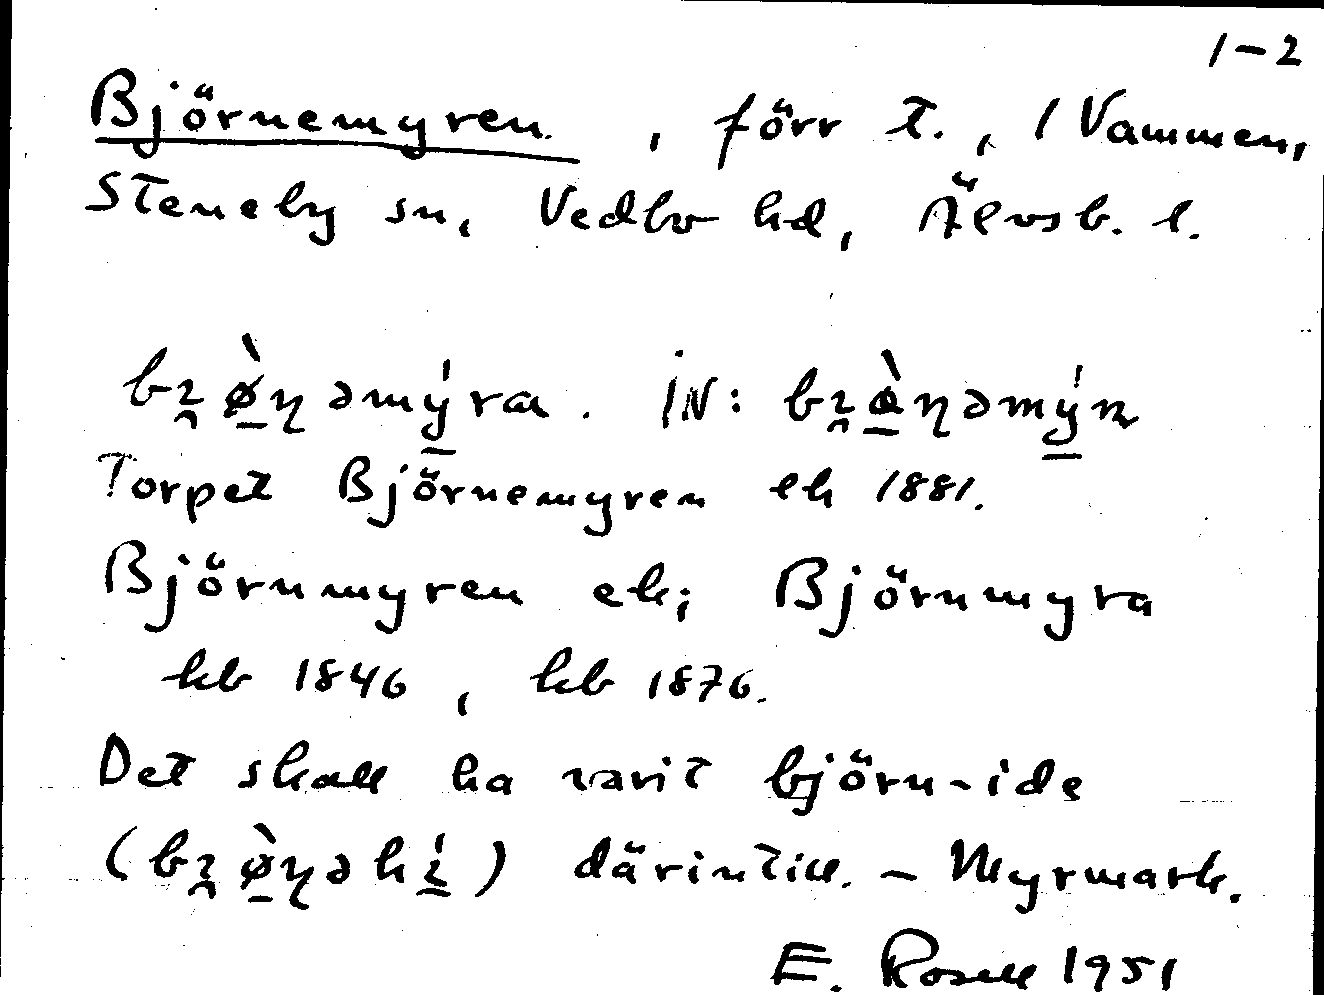 1–2
Björnemyren, förr t., 1 Vammen,
Steneby sn, Vedbo hd, Älvsb. l.
Torpet Björnemyren ek 1881.
Björnmyren ek; Björnmyra
hb 1846, kb 1876.
Det skall ha varit björn-ide
därintill. – Myrmark.
E. Rosell 1951